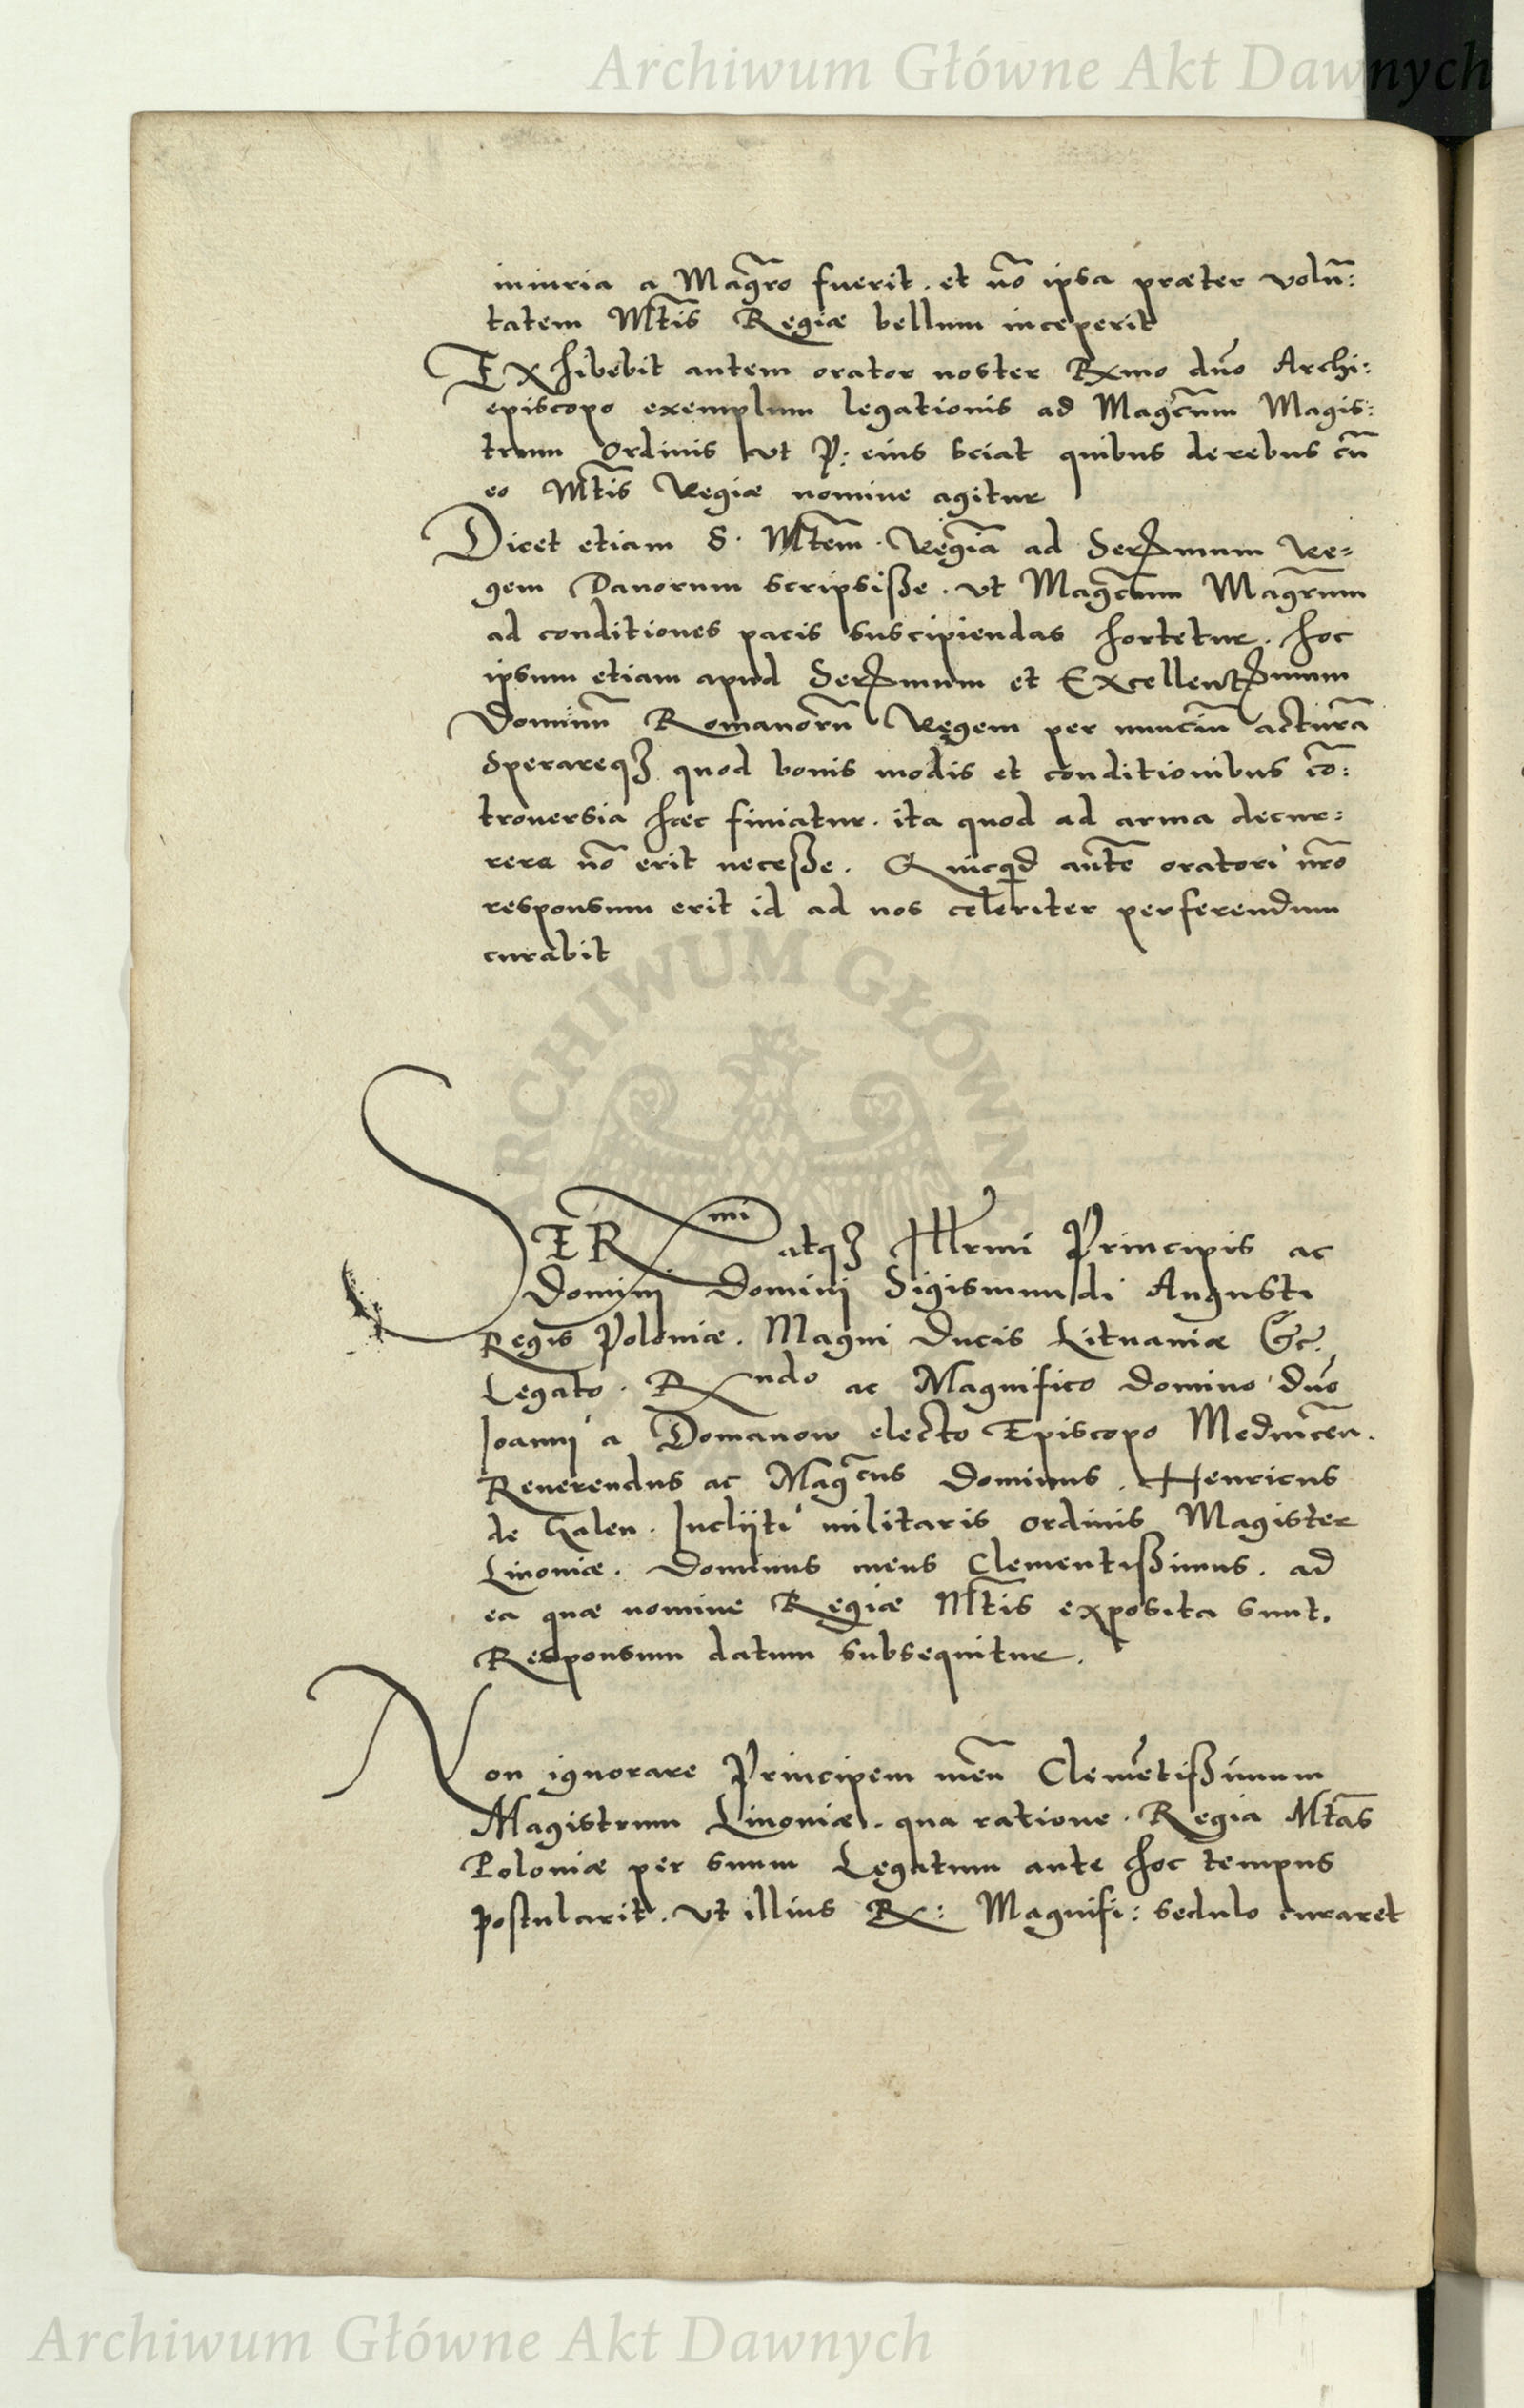 Archiwum Główne Akt Dawnych
iniuria a Magr̄o fuerit. et nō ipsa præter volū:
tatem Mt̄is Regiæ bellum inceperit
Exhibebit autem orator noster Rxmo dn̄o Archi:
episcopo exemplum legationis ad Magcūm Magis:
trum Ordinis ut P: eius sciat quibus de rebus cū
eo Mt̄is Regiæ nomine agitur
Dicet etiam S. Mt̄em. Regiā ad Serxmum Re=
gem Danorum scripsiße. ut Magcūm Magr̄um
ad conditiones pacis suscipiendas hortetur. hoc
ipsum etiam apud Serxmum et Excellentxmum
Dominū Romanorū Regem per nunciū acturā
Sperareqꝫ quod bonis modis et conditionibus cō:
trouersia hæc finiatur. ita quod ad arma decur:
rere nō erit neceße. Quicqd autē oratori nr̄o
responsum erit id ad nos celeriter perferendum
curabit
ARCHIWUM GŁÓWNE
SERmi atqꝫ Illrmi Principis ac
Domini Domini Sigismundi Augusti
Regis Poloniæ. Magni Ducis Lituaniæ &c.
Legato. Rndo ac Magnifico domino dn̄o
Joanni a Domanow electo Episcopo Mednicēn.
Reuerendus ac Magcus Dominus. Henricus
de Galen. Inclijti militaris ordinis Magister
Liuoniæ. Dominus meus Clementißimus. ad
ea quæ nomine Regiæ Mt̄is exposita sunt.
Responsum datum subsequitur.
Non ignorare Principem meū Clemētißimum
Magistrum Liuoniæ. qua ratione. Regia Mt̄as
Poloniæ per suum Legatum ante hoc tempus
postularit. ut illius Rx: Magnifi: sedulo curaret
Archiwum Główne Akt Dawnych